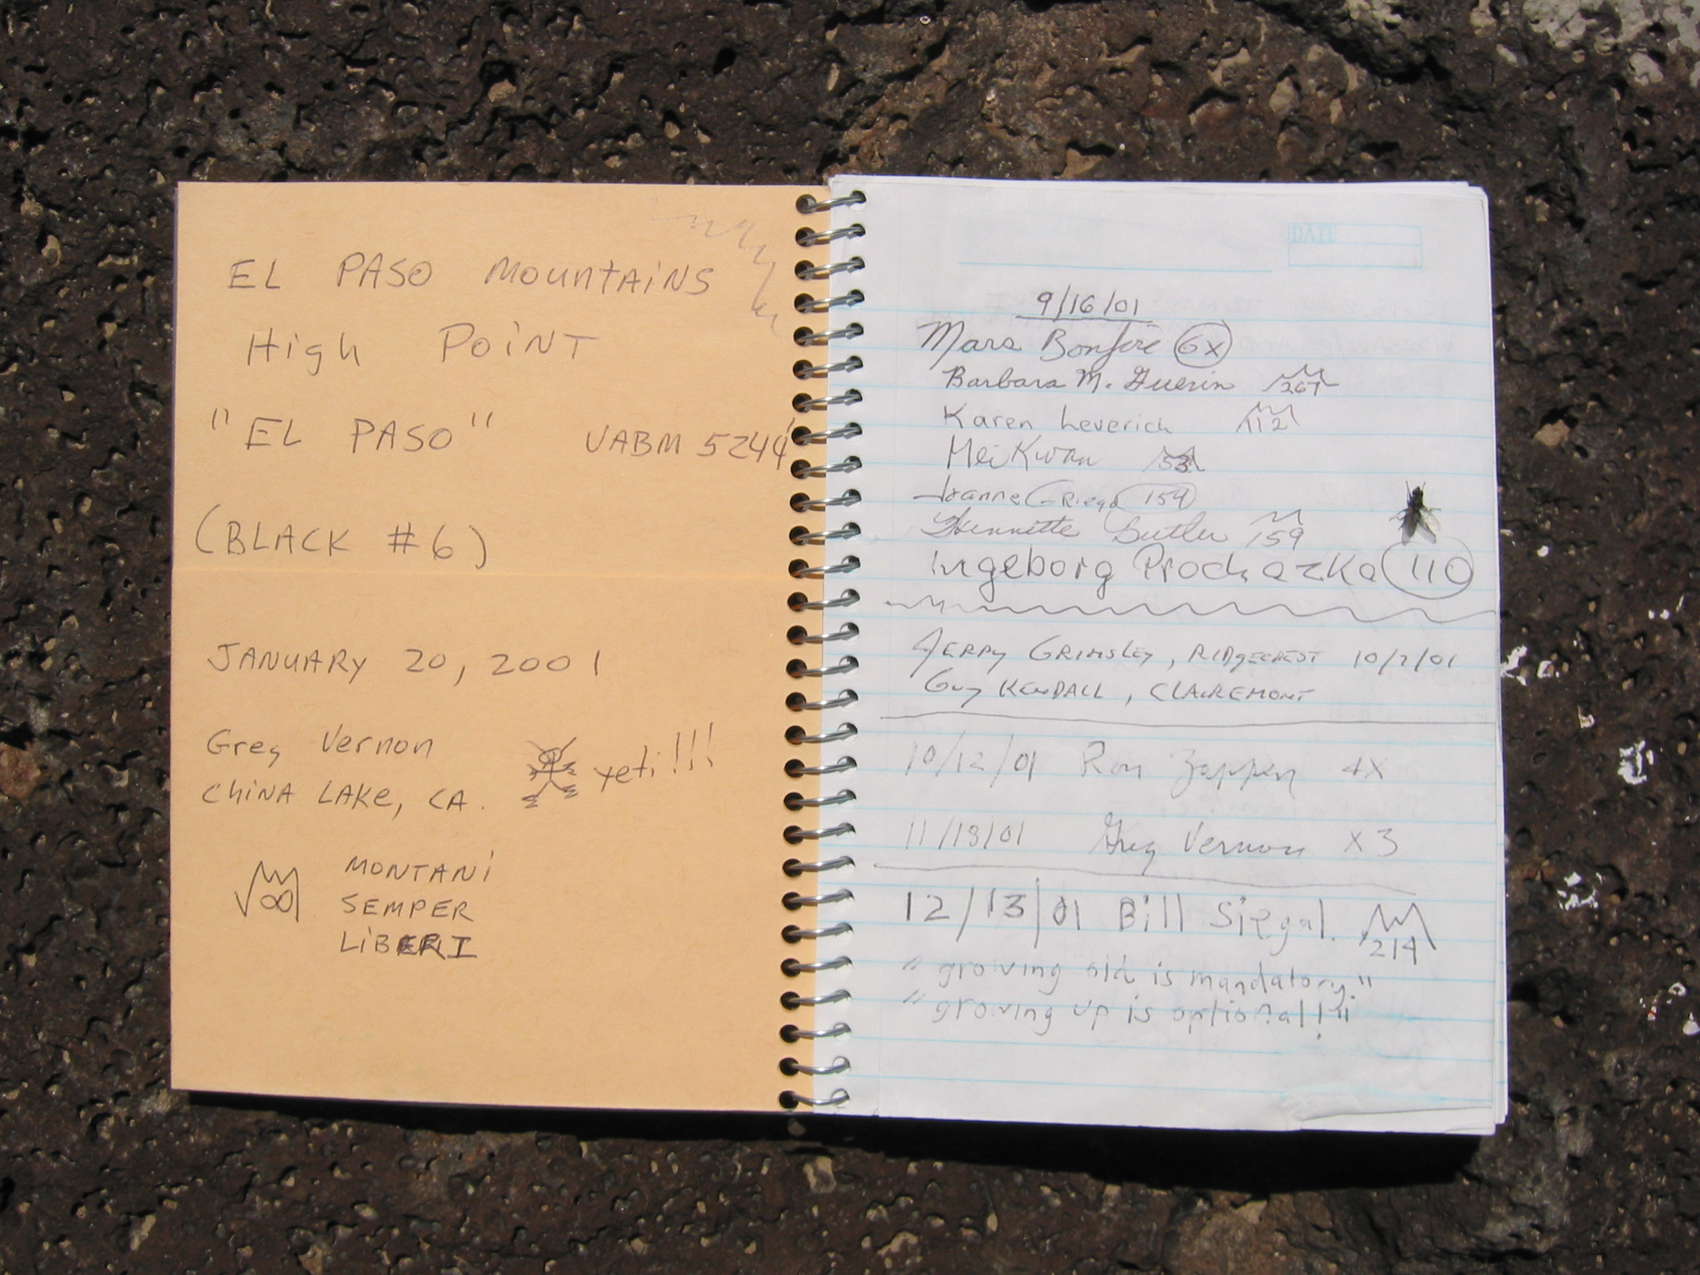 EL PASO MOUNTAINS
High POINT
"EL PASO" VABM 5244
(BLACK #6)
JANUARY 20, 2001
Greg Vernon
CHINA LAKE, CA.
yeti!!!
MONTANI
SEMPER
LIBERI
DATE
9/16/01
Mars Bonfire 6X
Barbara M. Guerin 267
Karen Leverich 112
Mei Kwan 53
Joanne Griego 154
Henriette Butler 159
Ingeborg Prochazka 110
JERRY GRIMSLEY, RIDGECREST 10/7/01
Guy KENDALL, CLAIREMONT
10/12/01 Ron Zappen 4X
11/18/01 Greg Vernon X3
12/13/01 Bill Siegal. 214
"growing old is mandatory."
"growing up is optional!"